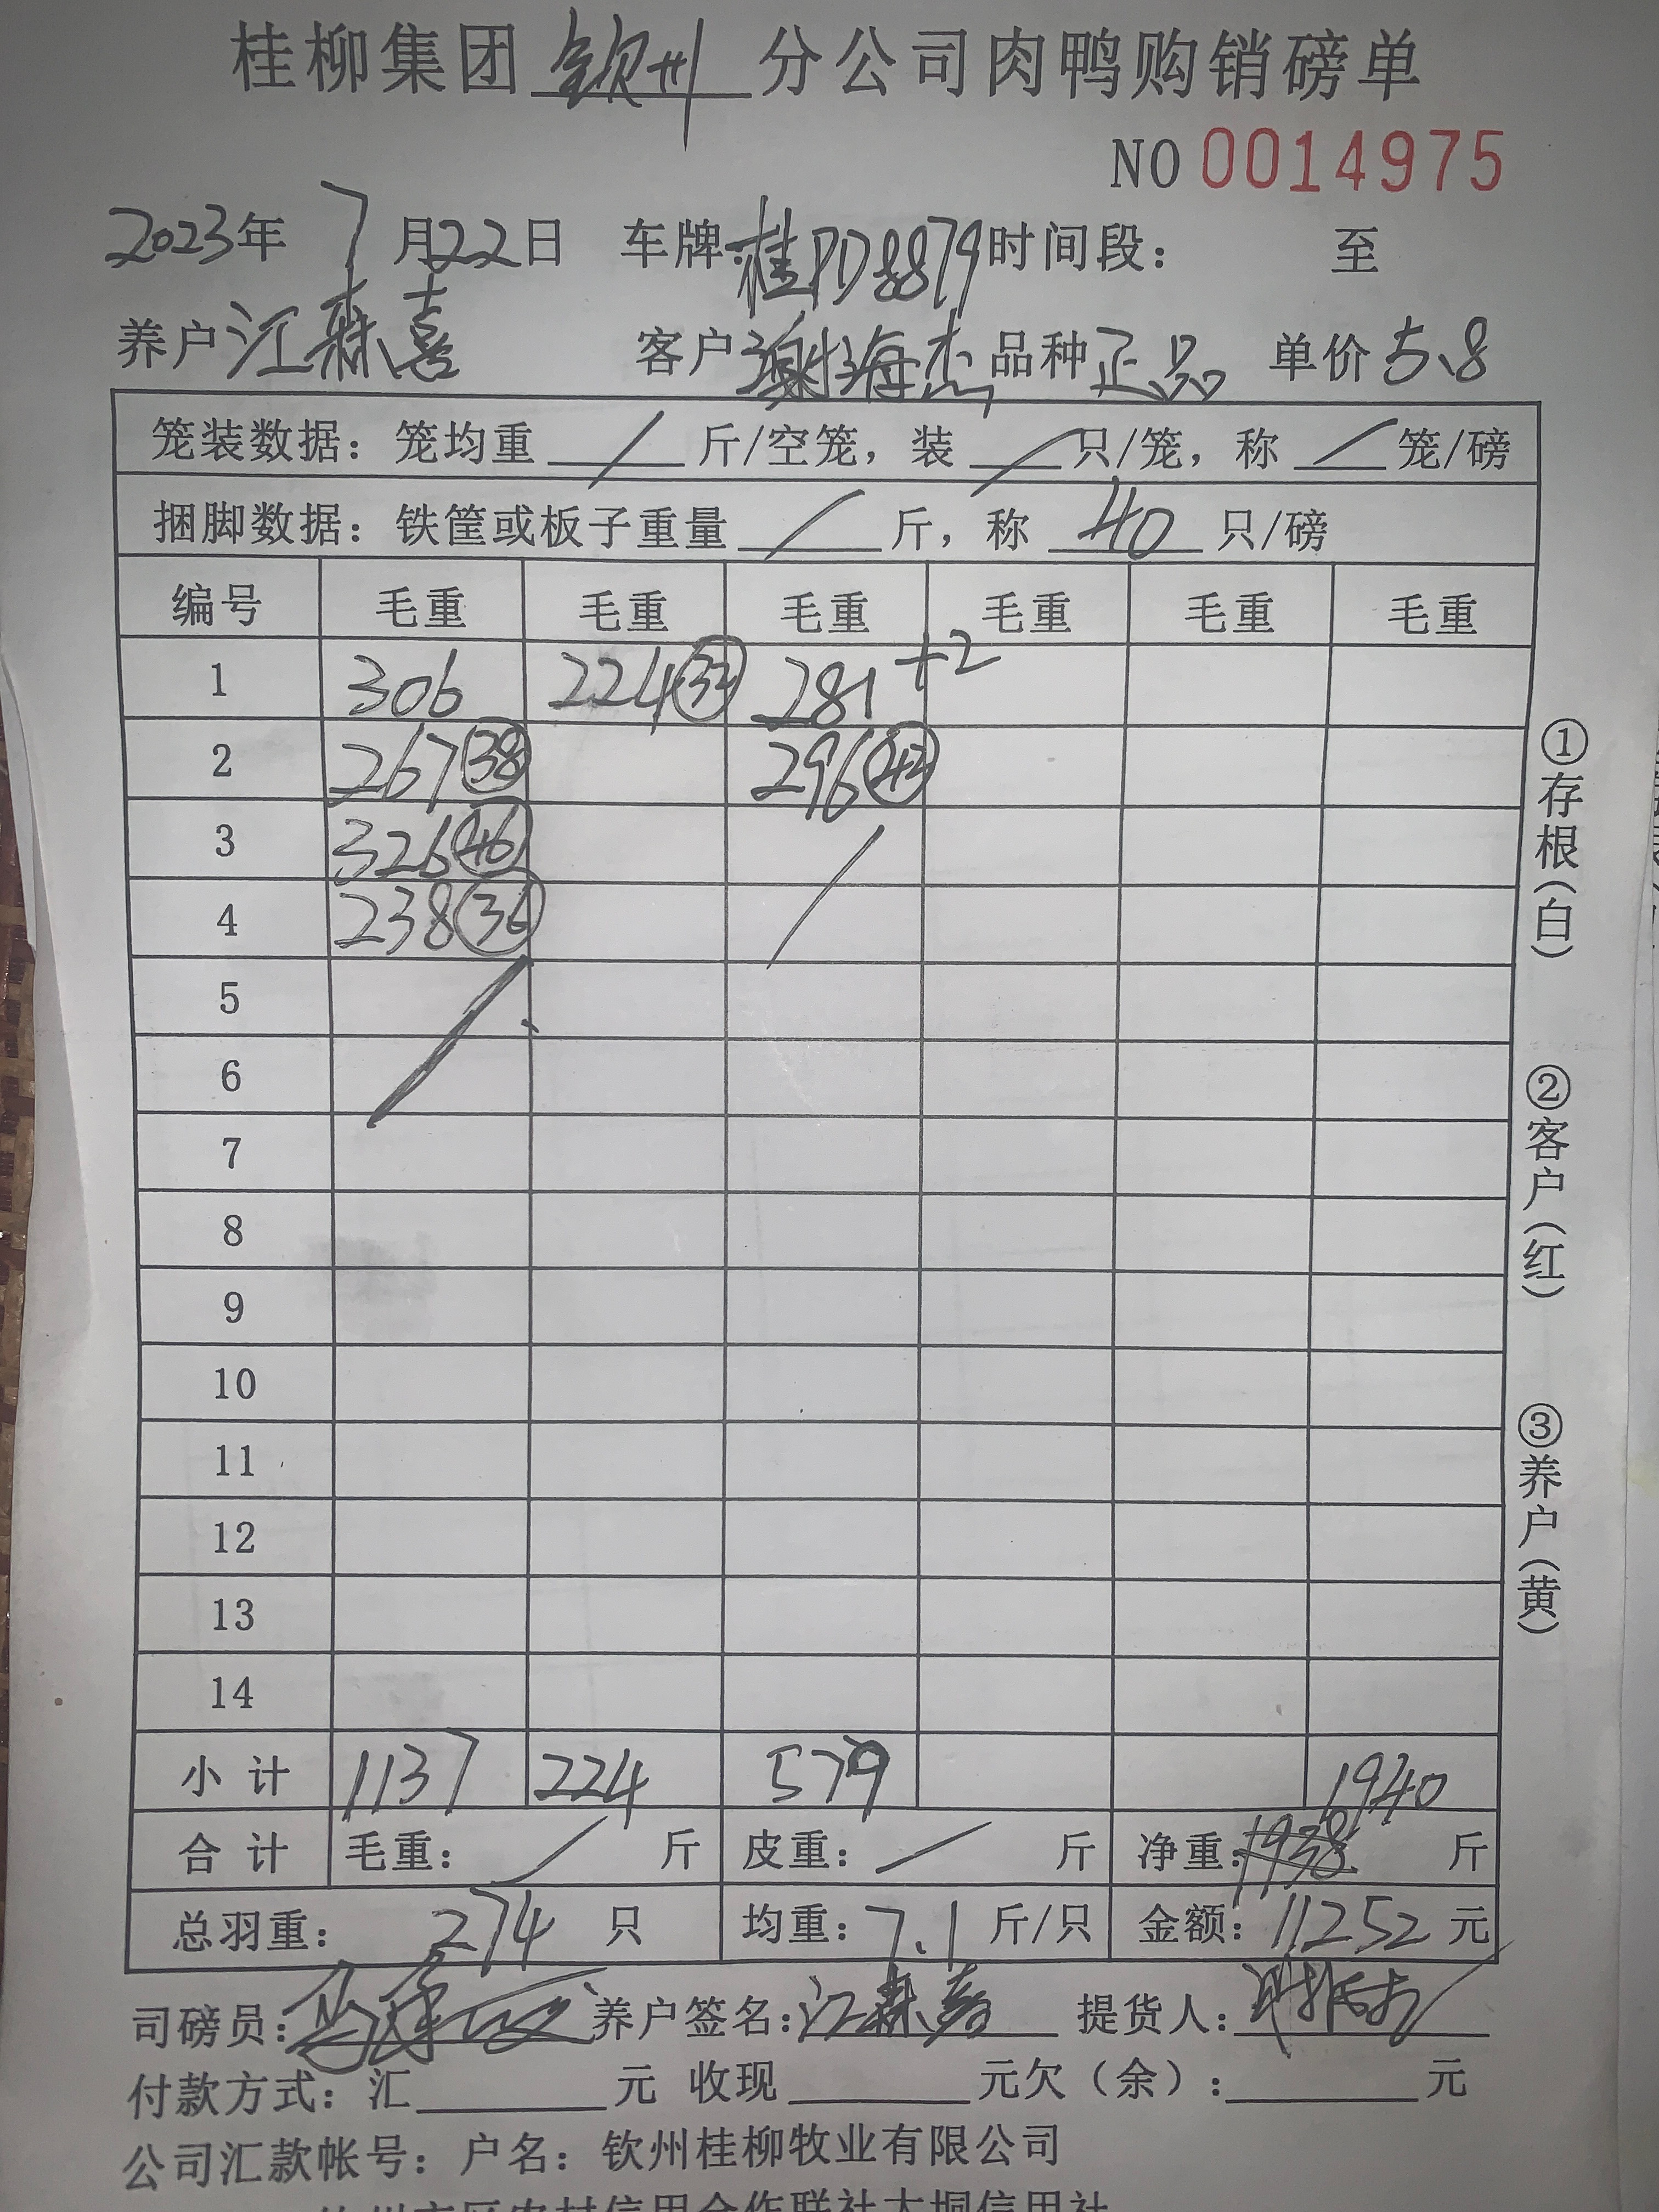 桂柳集团 钦州 分公司肉鸭购销磅单
NO 0014975
2023年 7月22日 车牌:桂PD8879 时间段： 至
养户 江森喜 客户 谢海杰 品种 正品 单价 5.8
笼装数据：笼均重 / 斤/空笼，装 / 只/笼，称 / 笼/磅
捆脚数据：铁筐或板子重量 / 斤，称 40 只/磅
编号 毛重 毛重 毛重 毛重 毛重 毛重
1 306 224(32) 281+2
2 267(38) 296(42)
3 326(46) /
4 238(36)
5
6
7
8
9
10
11
12
13
14
小计 1137 224 579 1940
合计 毛重： / 斤 皮重： / 斤 净重：1938 斤
总羽重： 274 只 均重：7.1 斤/只 金额：11252 元
司磅员： 养户签名：江森喜 提货人：
付款方式：汇 元 收现 元欠（余）： 元
公司汇款帐号：户名：钦州桂柳牧业有限公司
①存根（白）
②客户（红）
③养户（黄）